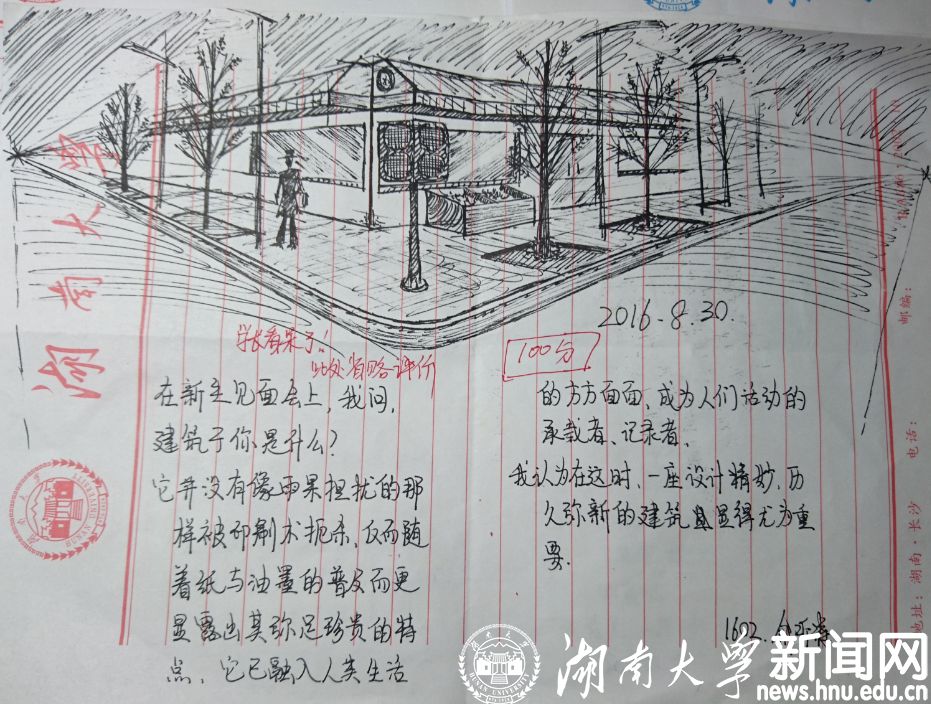 2016.8.30.
学长看呆了!
此处省略评价
100分
在新生见面会上,我问,
建筑于你是什么?
它并没有像雨果担忧的那
样被印刷术扼杀,反而随
着纸与油墨的普及而更
显露出其弥足珍贵的特
点,它已融入人类生活
的方方面面,成为人们活动的
承载者、记录者。
我认为在这时,一座设计精妙,历
久弥新的建筑显得尤为重
要.
1602.
湖南大学
HUNAN UNIVERSITY
邮编:
电话:
地址:湖南·长沙
湖南大学新闻网
news.hnu.edu.cn